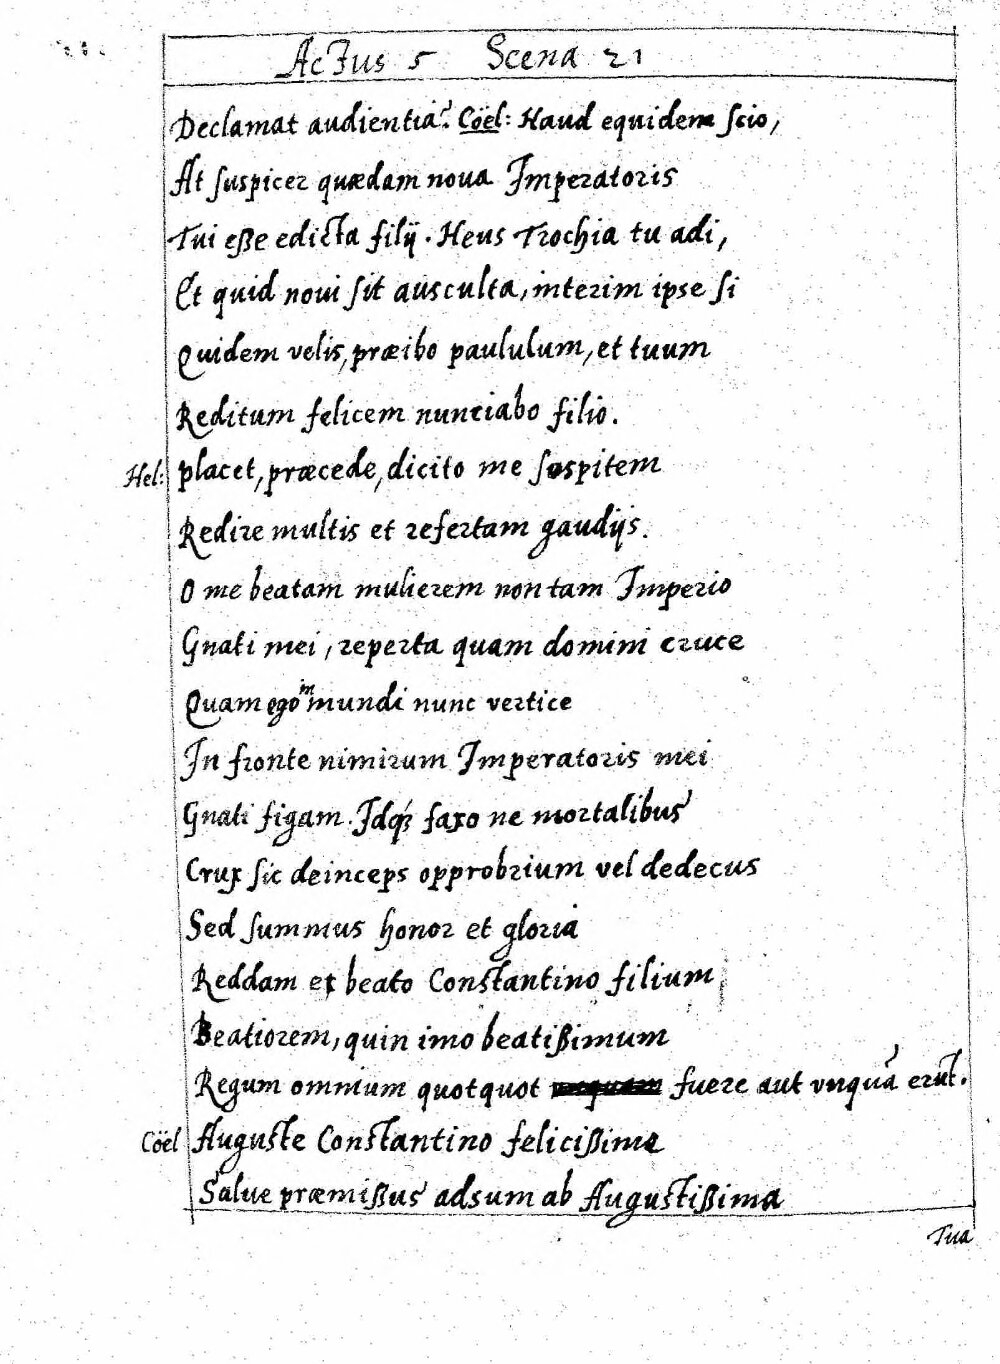 Actus 5 Scena 21
Declamat audientiã? Cöel: Haud equidem ſcio,
At ſuspicer quædam noua Imperatoris
Tui eße edicta filÿ. Heus Trochia tu adi,
Et quid noui ſit ausculta, interim ipse ſi
Quidem velis, præibo paululum, et tuum
Reditum felicem nunciabo filio.
Hel: placet, præcede, dicito me ſospitem
Redire multis et refertam gaudÿs.
O me beatam mulierem non tam Imperio
Gnati mei, reperta quam domini cruce
Quam ego m mundi nunc vertice
In fronte nimirum Imperatoris mei
Gnati figam. Idq́; faxo ne mortalibus
Crux ſic deinceps opprobrium vel dedecus
Sed ſummus honor et gloria
Reddam et beato Conſtantino filium
Beatiorem, quin imo beatißimum
Regum omnium quotquot fuere aut vnquã erũt.
Cöel Auguſte Conſtantino felicißime
Salue præmißus adsum ab Auguſtißima
Tua